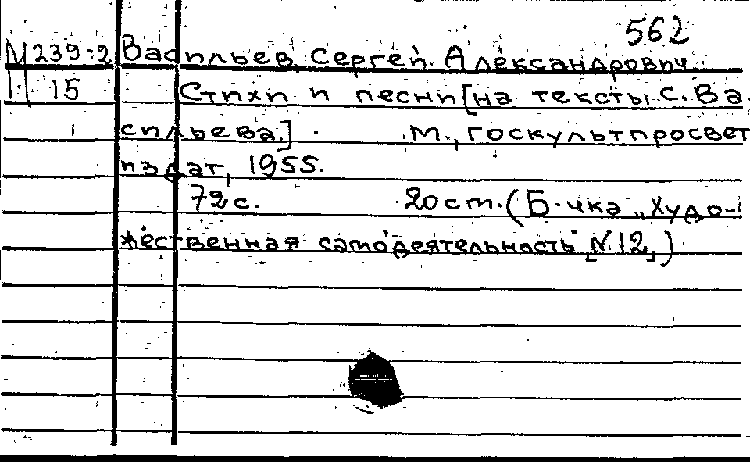 562
М 239-2 Васильев, Сергей Александрович.
15 Стихи и песни [на тексты С. Ва
сильева.] . М., Госкультпросвет
издат, 1955.
72 с. 20 см. (Б-чка „Худо-
жественная самодеятельность" N. 12)